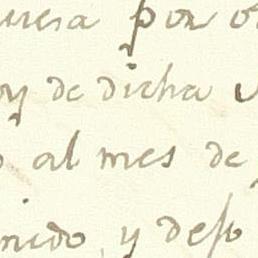 uresa por o
oy de dicha v
al mes de
nido, y de